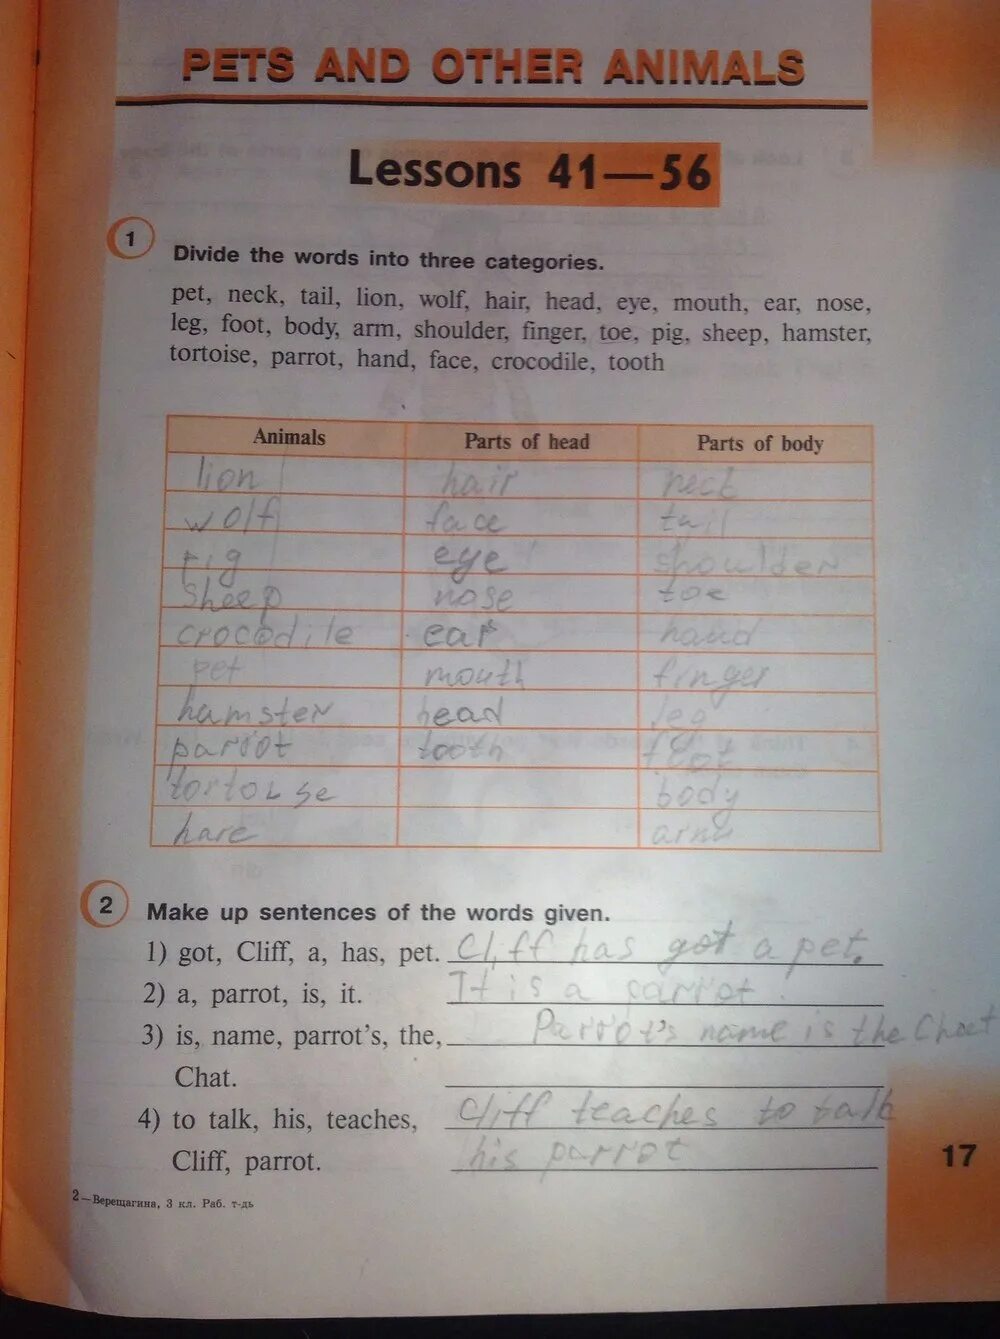 PETS AND OTHER ANIMALS
Lessons 41—56
1 Divide the words into three categories.
pet, neck, tail, lion, wolf, hair, head, eye, mouth, ear, nose,
leg, foot, body, arm, shoulder, finger, toe, pig, sheep, hamster,
tortoise, parrot, hand, face, crocodile, tooth
Animals Parts of head Parts of body
lion hair neck
wolf face tail
pig eye shoulder
sheep nose toe
crocodile ear hand
pet mouth finger
hamster head leg
parrot tooth foot
tortouse body
hare arm
2 Make up sentences of the words given.
1) got, Cliff, a, has, pet. Cliff has got a pet.
2) a, parrot, is, it. It is a parrot.
3) is, name, parrot's, the, Parrot's name is the Chat
Chat.
4) to talk, his, teaches, Cliff teaches to talk
Cliff, parrot. his parrot
17
2—Верещагина, 3 кл. Раб. т-дь